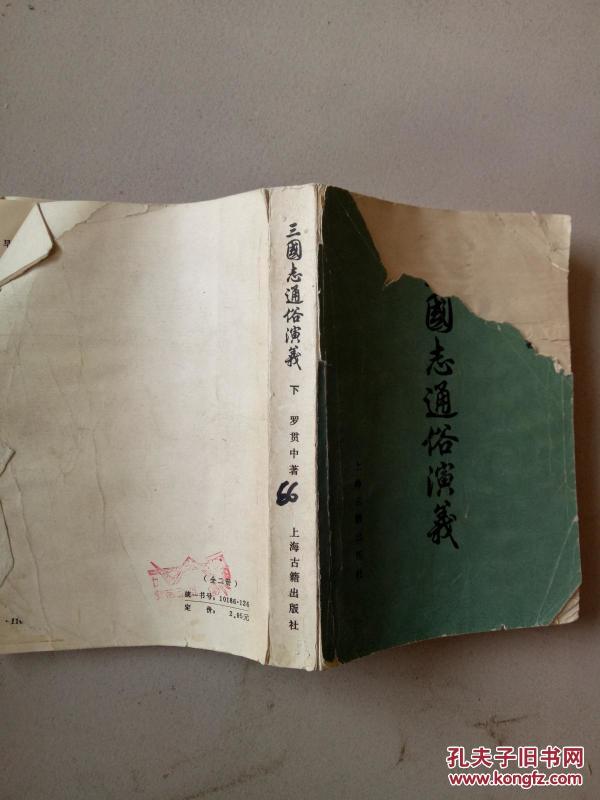 國志通俗演義
上海古籍出版社
三國志通俗演義
下
罗贯中著
99
上海古籍出版社
（全二册）
统一书号：10186·126
定价：2.05元
早
·110
孔夫子旧书网
www.kongfz.com